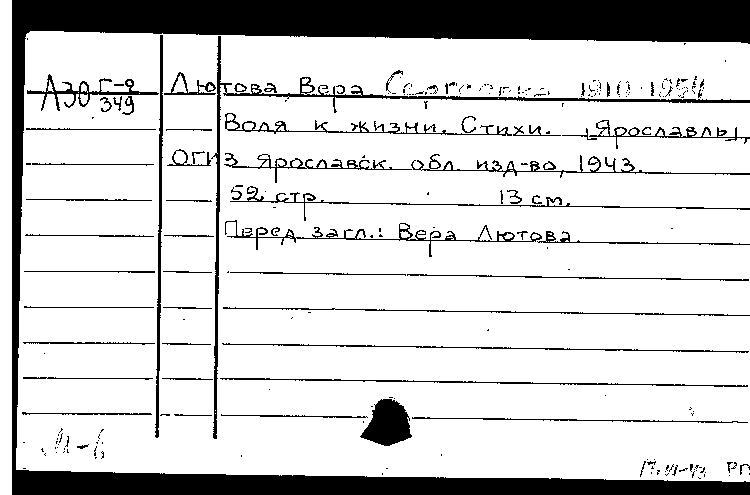 А30 Г-9
349
Лютова, Вера Сергеевна 1910-1954
Воля к жизни. Стихи. [Ярославль],
ОГИЗ Ярославск. обл. изд-во, 1943.
52 стр. 13 см.
Перед загл.: Вера Лютова.
РП